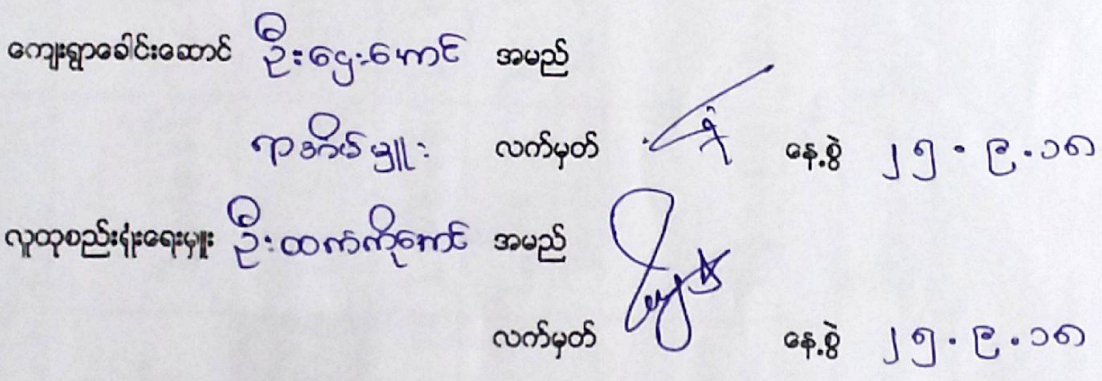 ကျေးရွာခေါင်းဆောင် ဦးဌေးအောင် အမည်
ရာအိမ်မှူး လက်မှတ် နေ့စွဲ ၂၅.၉.၁၈
လူထုစည်းရုံးရေးမှူး ဦးထက်ကိုအောင် အမည်
လက်မှတ် နေ့စွဲ ၂၅.၉.၁၈